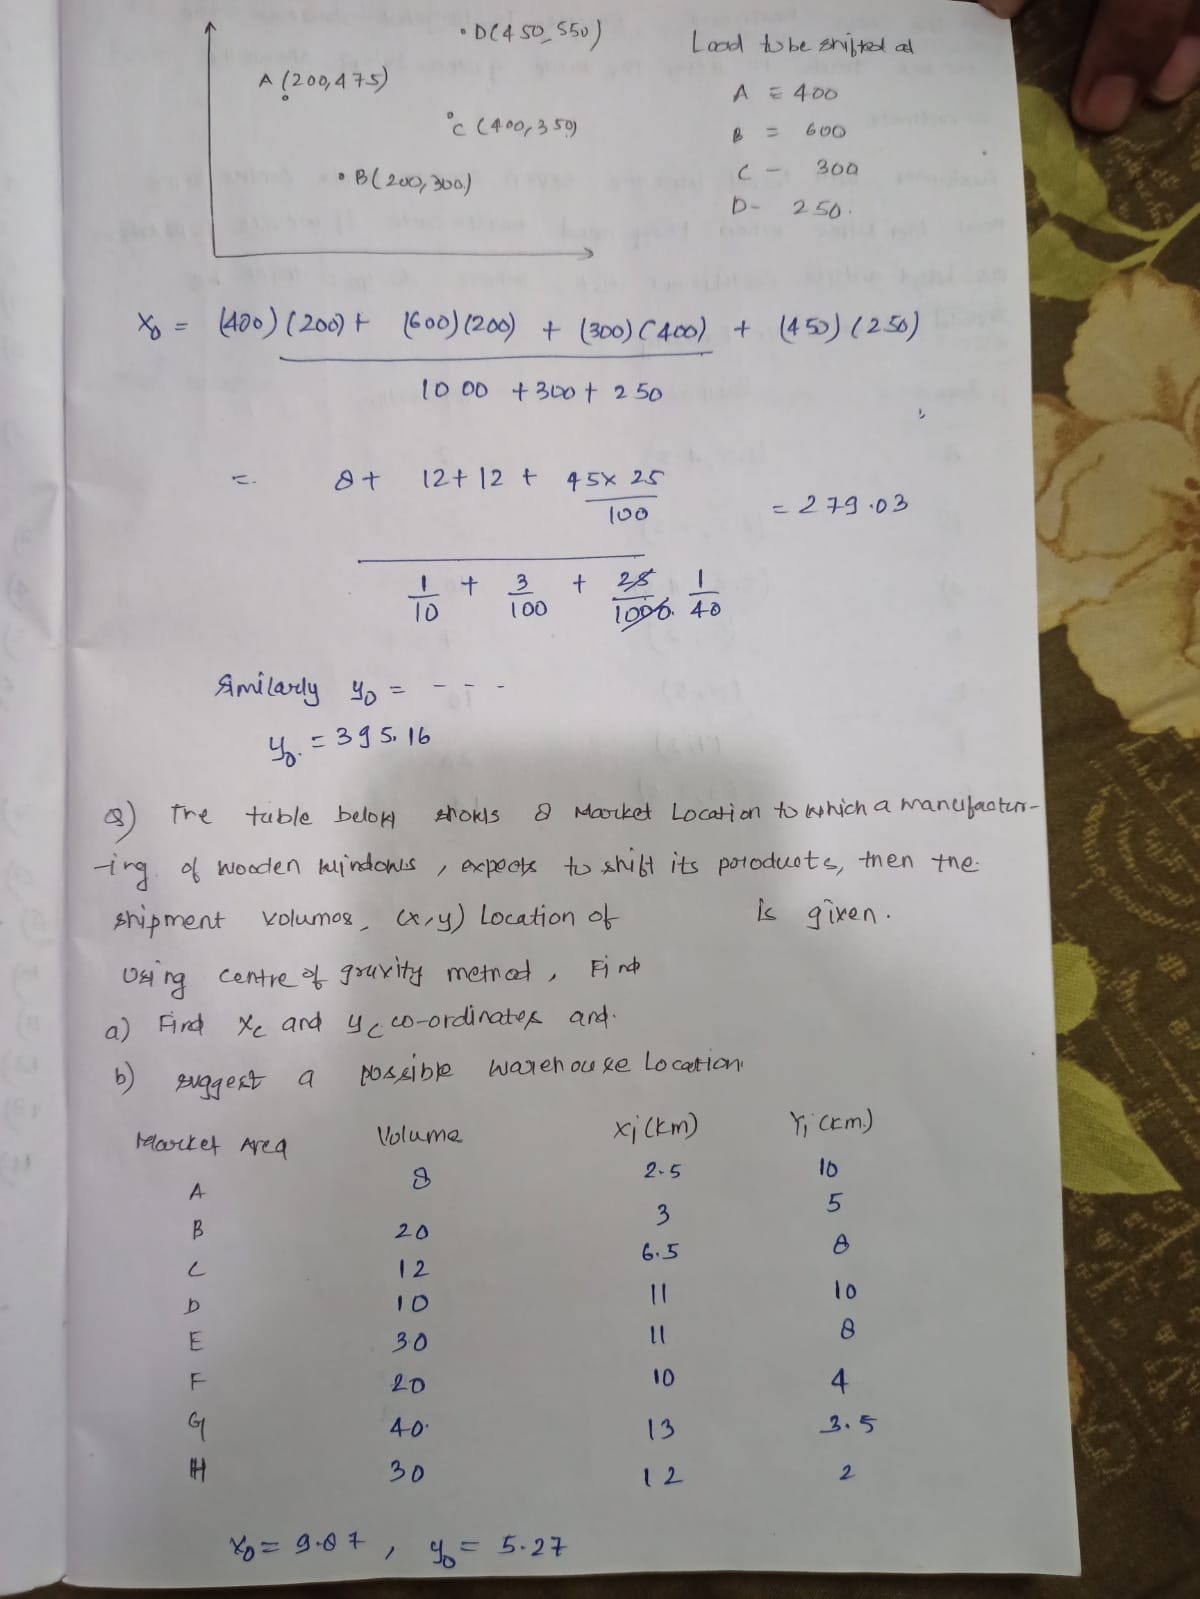 D(450, 550)
Load to be shifted at
A (200,475)
A = 400
C (400, 350)
B = 600
C - 300
B(200, 300)
D- 250.
x₀ = (400)(200) + (600)(200) + (300)(400) + (450)(250)
1000 + 300 + 250
= 8 + 12 + 12 + 45x 25
100
= 279.03
1/10 + 3/100 + 25/1000 1/40
Similarly y₀ = - - -
y₀ = 395.16
Q) The table below shows 8 Market Location to which a manufactur-
-ing of wooden windows, expects to shift its products, then the
shipment volumes, (x,y) Location of is given.
Using centre of gravity method, Find
a) Find xc and yc co-ordinates and.
b) suggest a possible warehouse Location
Market Area Volume Xi (km) Yi (km.)
A 8 2.5 10
B 20 3 5
C 12 6.5 8
D 10 11 10
E 30 11 8
F 20 10 4
G 40 13 3.5
H 30 12 2
x₀ = 9.87, y₀ = 5.27